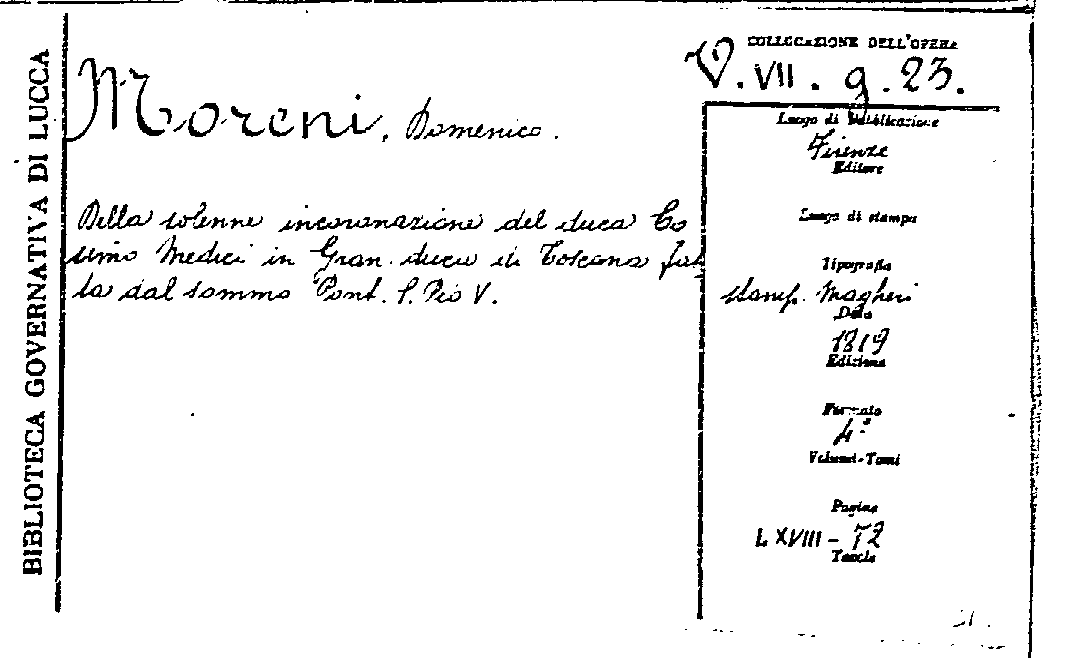 BIBLIOTECA GOVERNATIVA DI LUCCA
Moreni, Domenico.
Della solenne incoronazione del duca Co
simo Medici in Gran. duca di Toscana fat
ta dal sommo Pont. S. Pio V.
COLLOCAZIONE DELL'OPERA
V. VII. g. 23.
Luogo di Pubblicazione
Firenze
Editore
Luogo di stampa
Tipografia
stamp. Magheri
Data
1819
Edizione
Formato
4º
Volumi-Tomi
Pagine
LXVIII - 72
Tavole